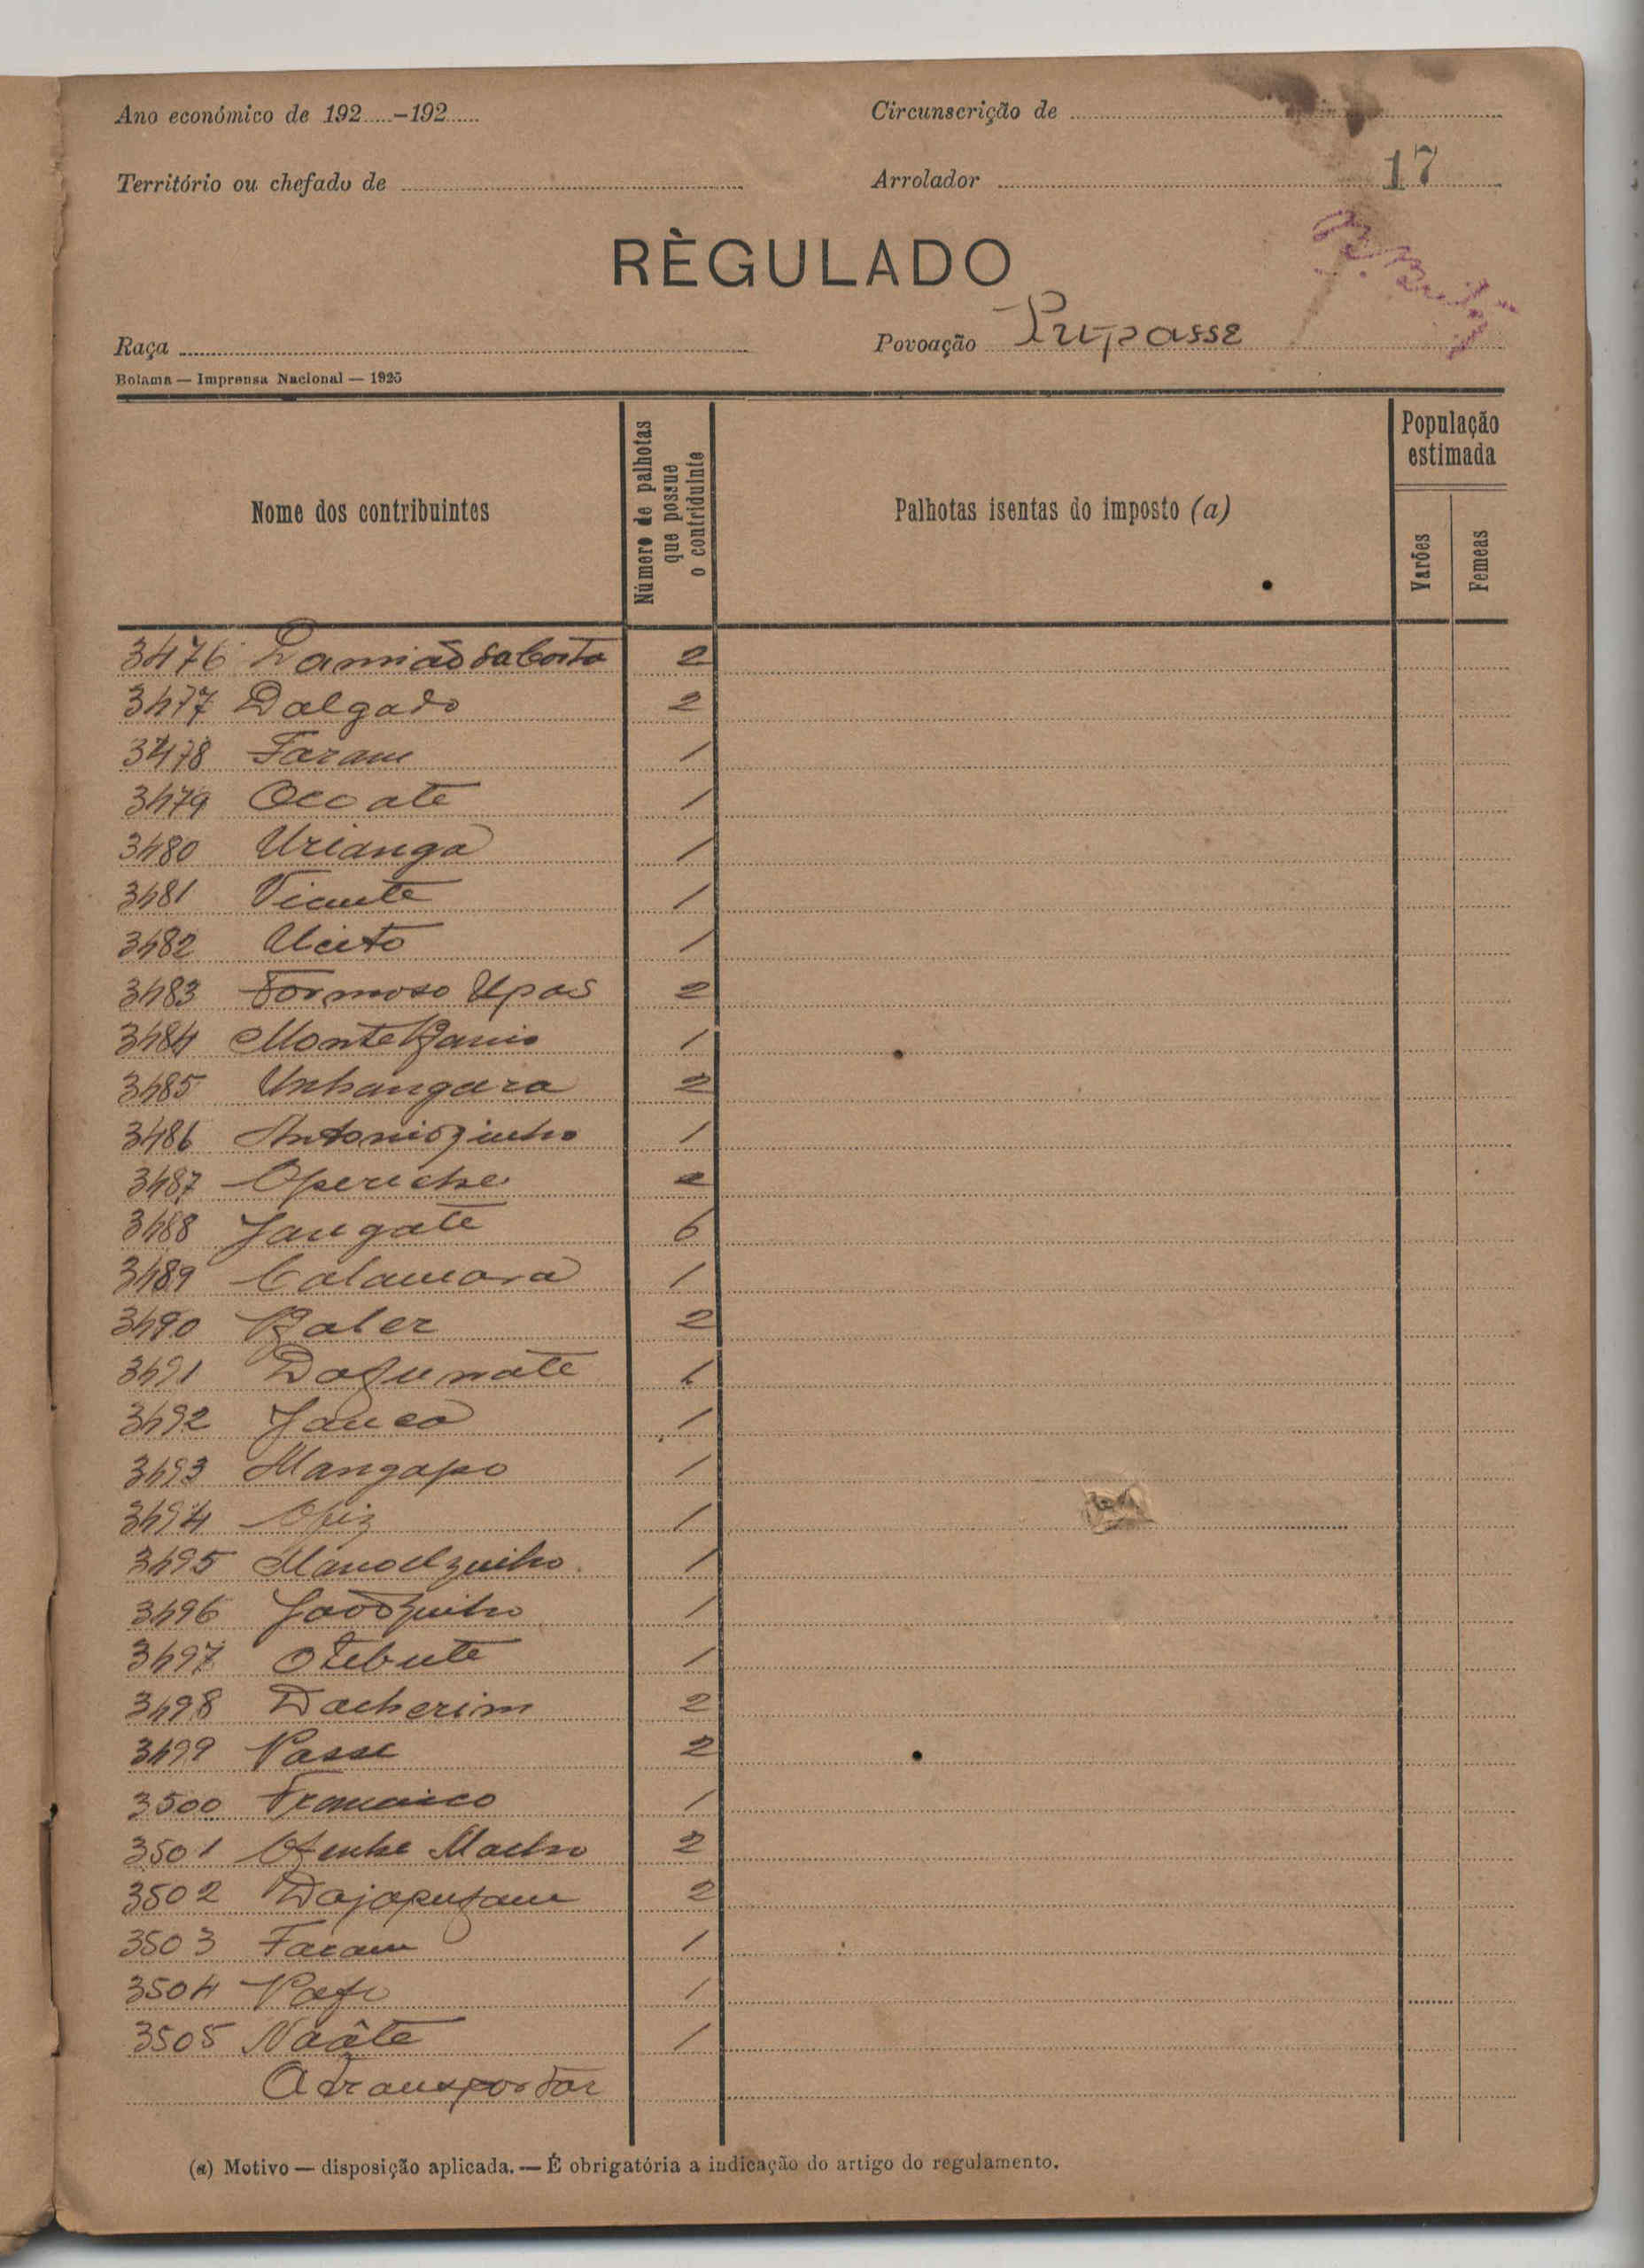 Ano económico de 192.....-192......
Circunscrição de
Território ou chefado de
Arrolador
17
RÈGULADO
Raça
Povoação Prupasse
Bolama — Imprensa Nacional — 1925
Nome dos contribuintes
Número de palhotas que possue o contriduinte
Palhotas isentas do imposto (a)
População estimada
Varões
Femeas
3476 Damião da Costa 2
3477 Dalgado 2
3478 Faram 1
3479 Occate 1
3480 Urianga 1
3481 Vicente 1
3482 1
3483 Formoso Upas 2
3484 Monte 1
3485 Unhangara 2
3486 Antoniozinho 1
3487 Operiche 2
3488 Jangate 6
3489 Calamara 1
3490 2
3491 1
3492 Janca 1
3493 Mangapo 1
3494 Opiz 1
3495 Manoelzinho 1
3496 Joãozinho 1
3497 Otebute 1
3498 Dacherim 2
3499 Passe 2
3500 Francisco 1
3501 Macho 2
3502 2
3503 Faram 1
3504 1
3505 Naâte 1
A transportar
(a) Motivo — disposição aplicada. — É obrigatória a indicação do artigo do regulamento.